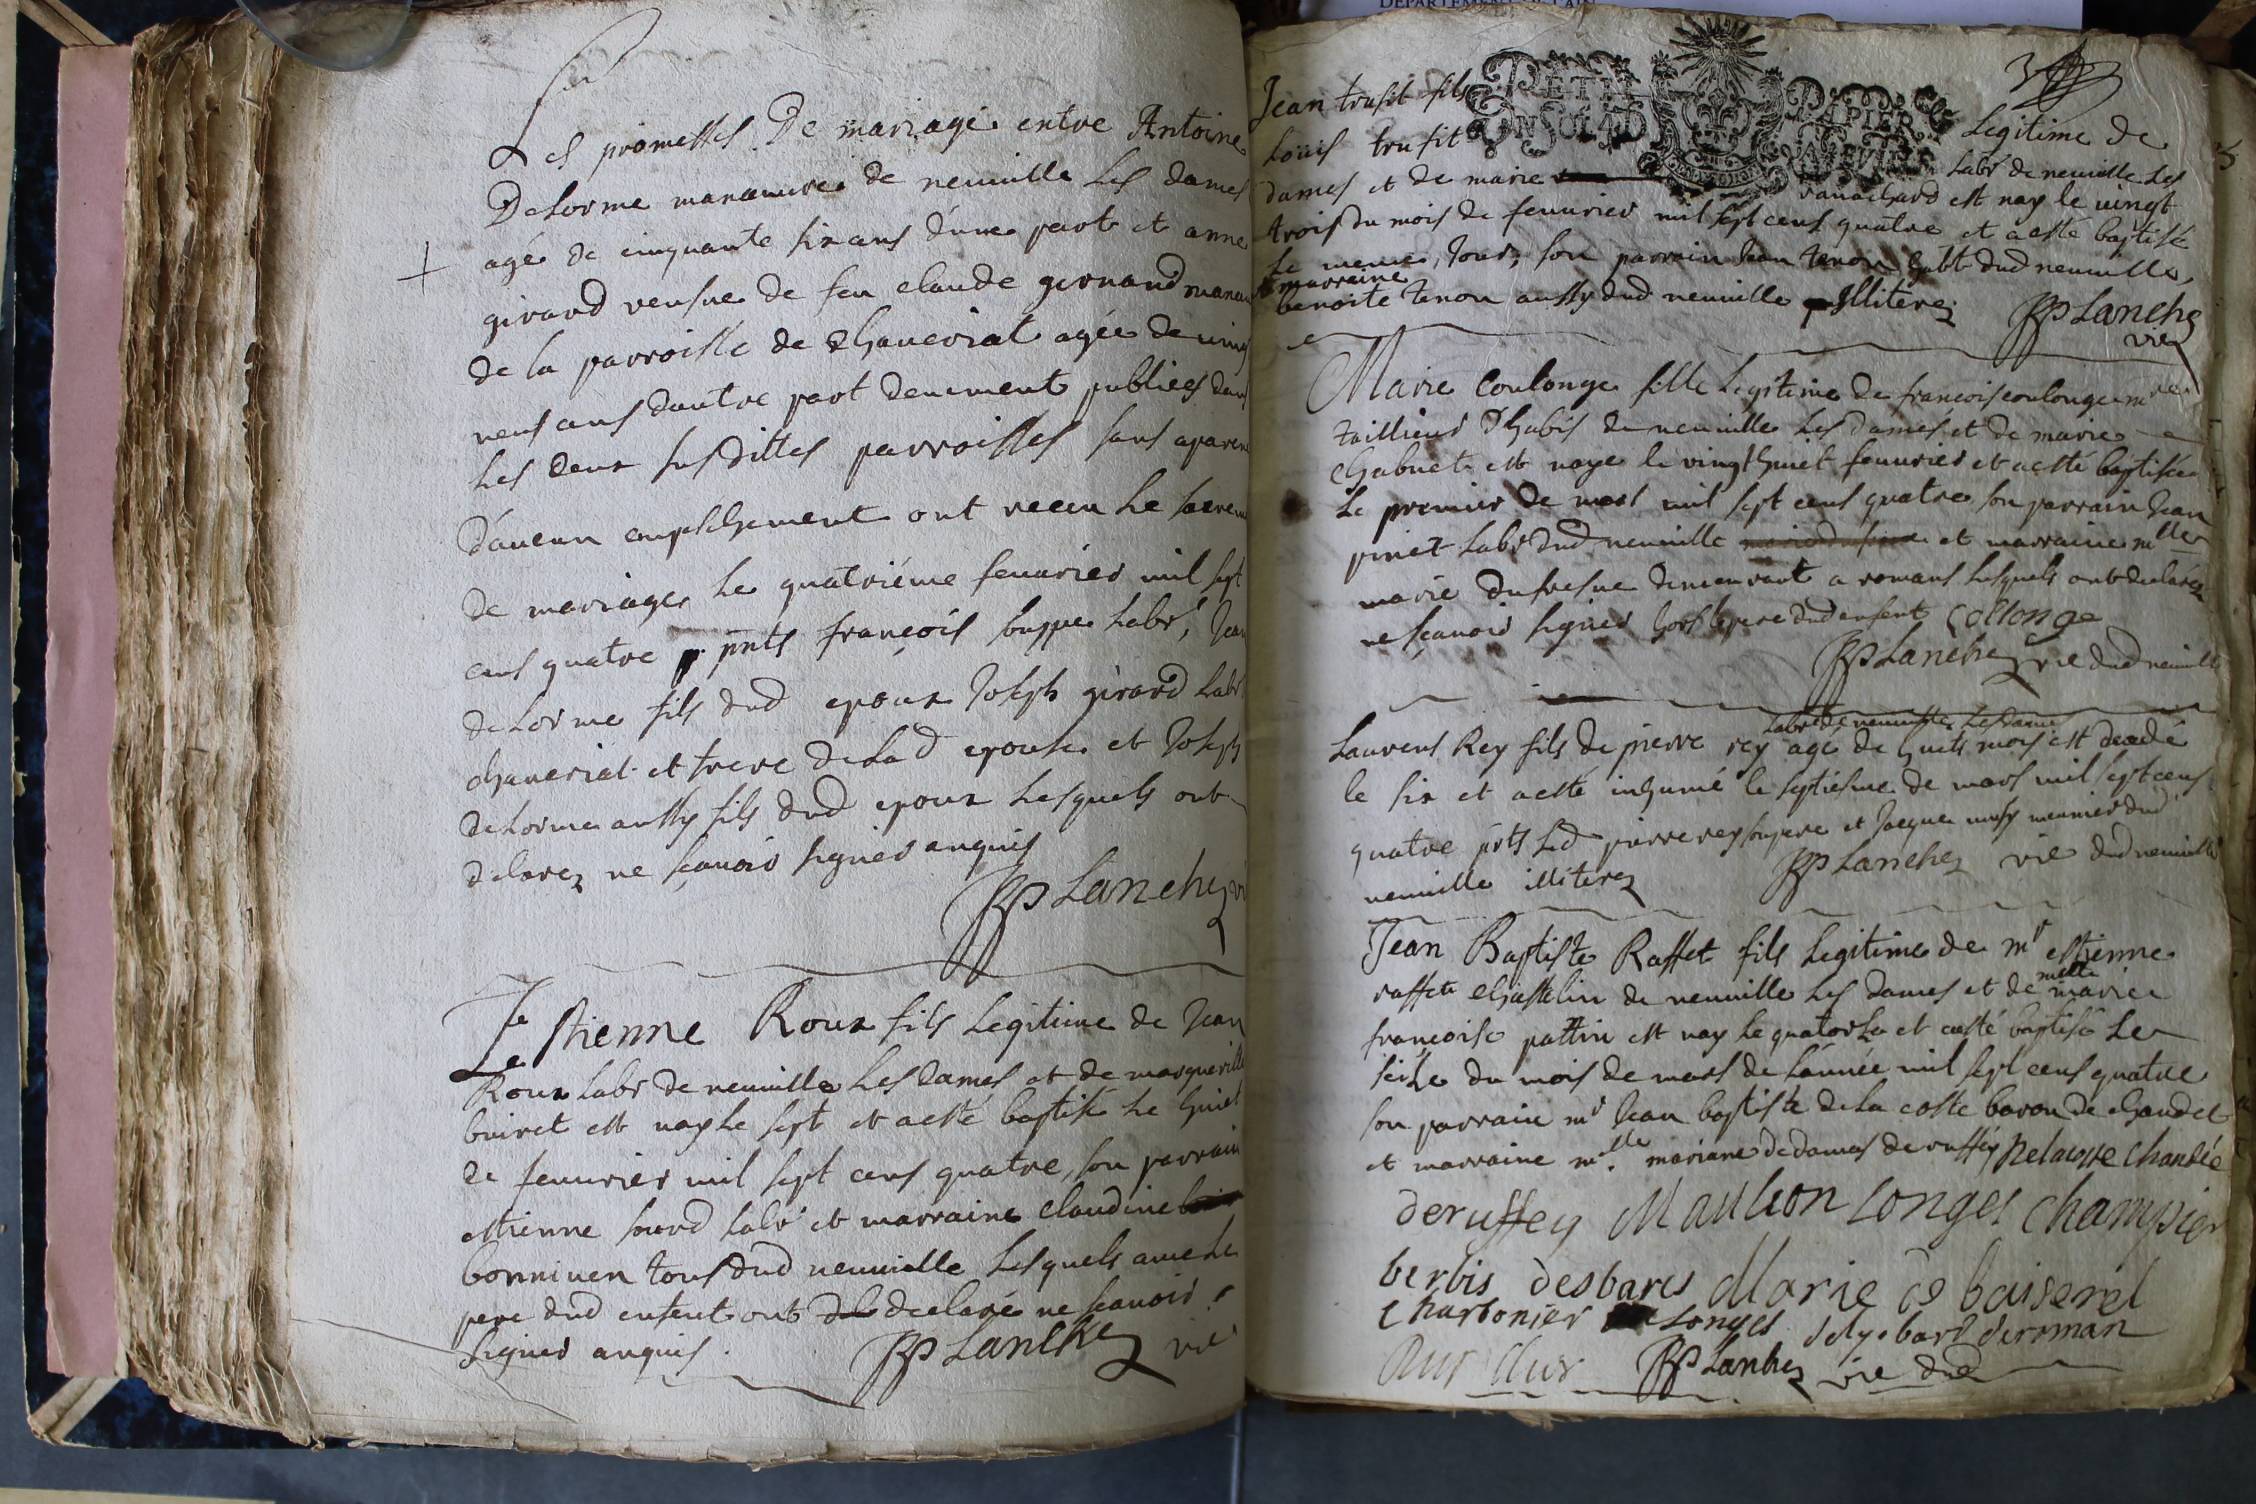 Les promesses De mariage entre Antoine
Delorme manouvre de neuville Les dames
agé de cinquante six ans d'une part et anne
girard veufve de feu claude gernand manou
de la parroisse de Chaveriat agée de ving
neuf ans dautre part deuement publiées dans
Les deux susdittes parroisses sans aparen
d'aucun empeschement ont receu Le sacrem
de mariage Le quatriéme feuvrier mil sept
cens quatre pnts françois souppe Labr, Jean
delorme fils dud epoux Joseph girard Labr
chaveriat et frere de Lad epouse et Joseph
delorme aussy fils dud epoux Lesquels ont
declarez ne sçavoir signer enquis
JP Lanchez vi
Estienne Roux fils Legitime de Jean
Roux Labr de neuville Les dames et de
buiret est nay Le sept et a esté baptisé Le huict
de feuvrier mil sept cens quatre, son parrain
estienne Labr et marraine Claudine
bonniven tous dud neuville Lesquels avec Le
pere dud enfent ont declaré ne sçavoir
signer enquis. JP Lanchez vic
PETIT PAPIER
Jean trufit fils Legitime de
Loüis trufit Labr de neuville Les
dames et de marie vanachard est nay le vingt
trois du mois de feuvrier mil sept cens quatre et a esté baptisé
Le meme Jour, son parrain Jean tenon habt dud neuville,
marraine
benoite tenon aussy dud neuville Illiterez JP Lanchez
vic
Marie Coulonge fille Legitime de francois coulonge mre
tailleur d'habis de neuville Les dames et de marie
Chabuet est naye le vingt huict feuvrier et a esté baptisée
Le premier de mars mil sept cens quatre son parrain Jean
pinet Labr dud neuville et marraine mlle
marie dufresne demeurant a romans Lesquels ont declarez
ne sçavoir signer hors le pere dud enfent Collonge
JP Lanchez vic dud neuville
Labr de neuville Les Dames
Laurens Rey fils de pierre rey agé de huict mois est decedé
le six et a esté inhumé le septiesme de mars mil sept cens
quatre pnts Led pierre rey son pere et Jacque meunier dud
neuville illiterez JP Lanchez vic dud neuville
Jean Baptiste Raffet fils Legitime de mr estienne
raffet Chastelin de neuville Les dames et de melle marie
françoise pattin est nay Le quatorze et a esté baptisé Le
seize du mois de mars de L'année mil sept cens quatre
son parrain mr Jean baptiste de La coste baron de Chandee
et marraine mlle mariane de damas de ruffey Delacoste Chandée
deruffey Maulion Longes Champier
berbis desbares Marie de baiserel
Charbonier Longes
JP Lanchez vic dud